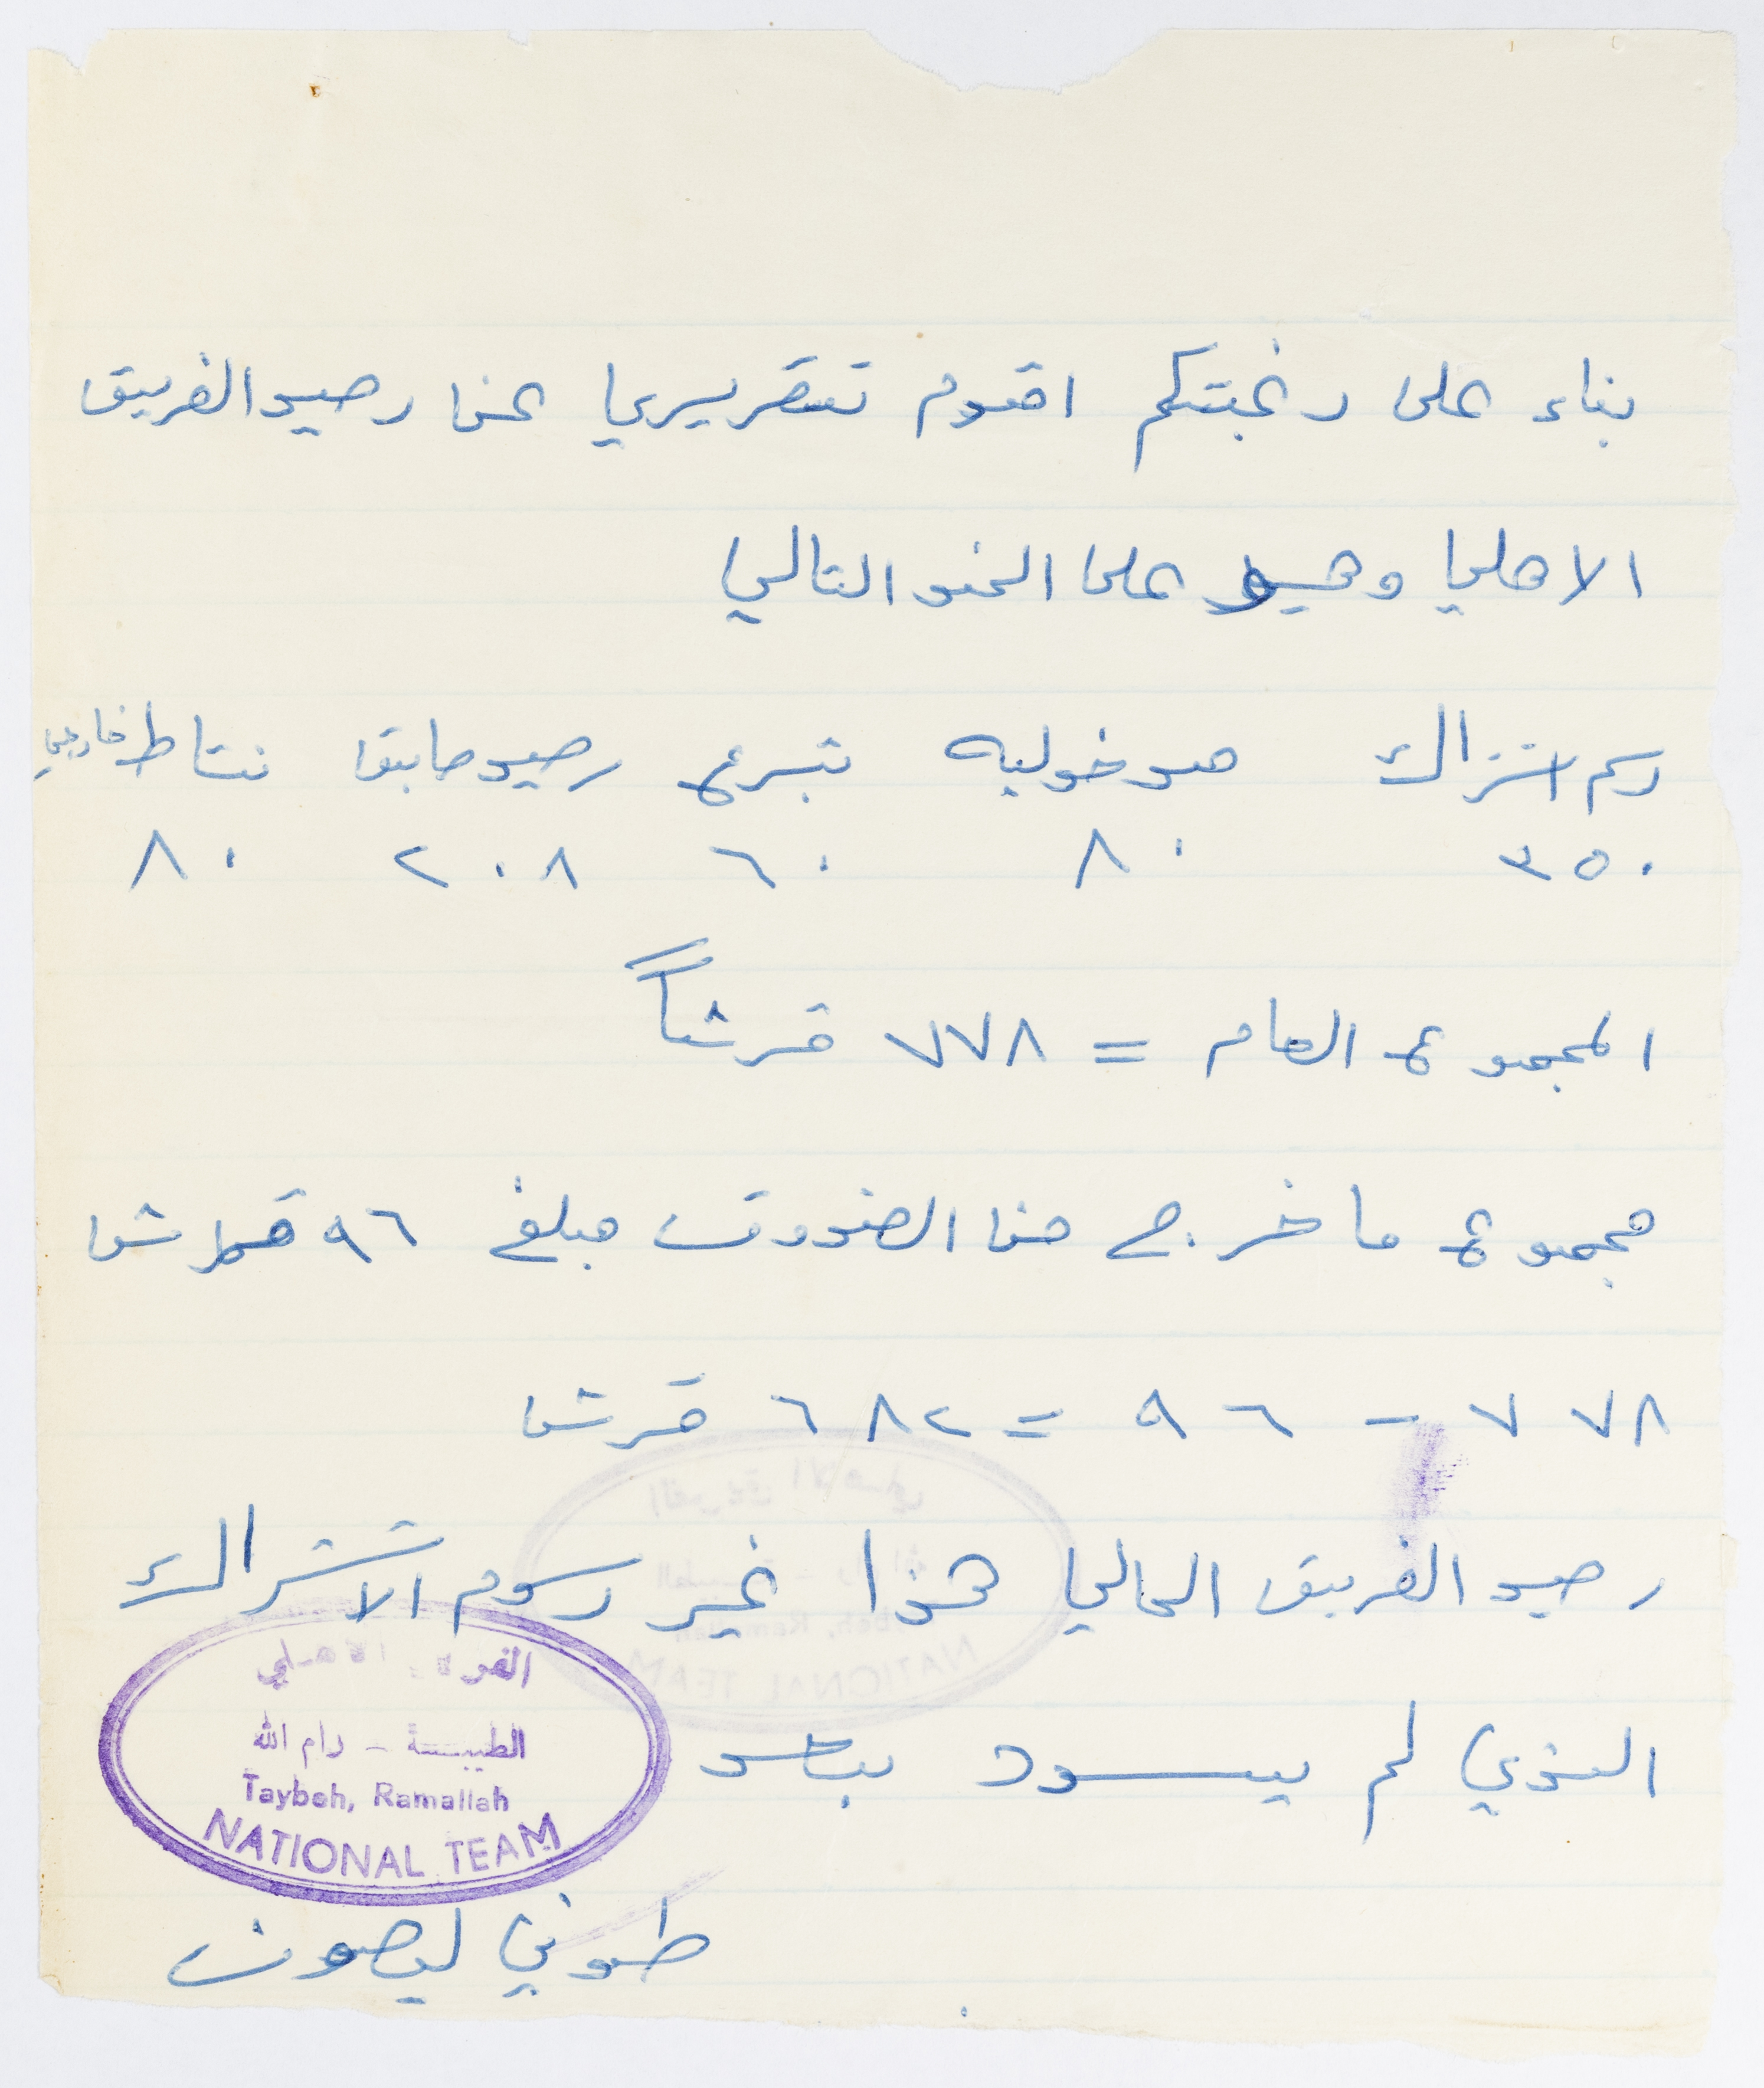 بناء على رغبتكم اقدم تقريري عن رصيد الفريق
الاهلي وهو على النحو التالي
رسم اشتراك مدخوليه تبرع رصيد سابق نشاط خارجي
٣٥٠ ٨٠ ٦٠ ٢٠٨ ٨٠
المجموع العام = ٧٧٨ قرشاً
مجموع ما خرج من الصندوق مبلغ ٩٦ قرش
٧٧٨ - ٩٦ = ٦٨٢ قرش
رصيد الفريق الحالي هذا غير رسوم الاشتراك
الذي لم يسدد بعد
الفريق الاهلي
الطيبة - رام الله
Taybeh, Ramallah
NATIONAL TEAM
طوني